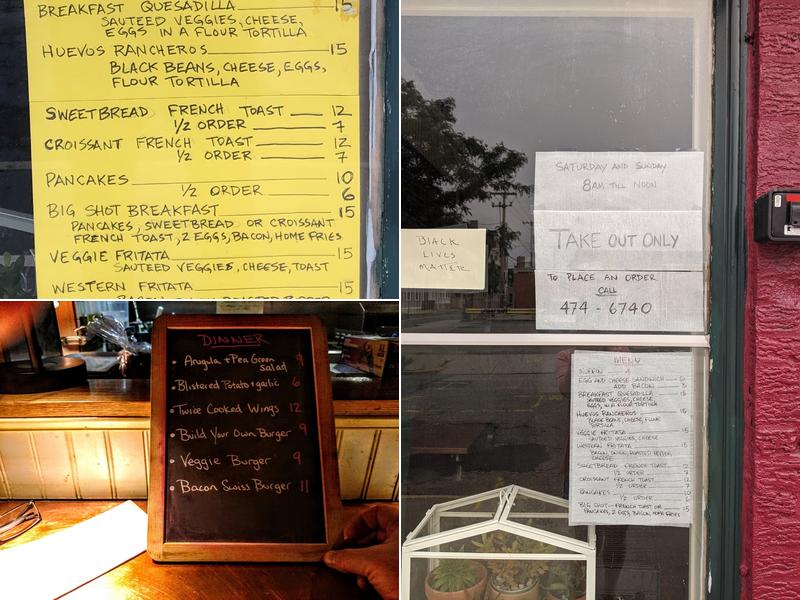 BREAKFAST QUESADILLA 15
SAUTEED VEGGIES, CHEESE,
EGGS IN A FLOUR TORTILLA
HUEVOS RANCHEROS 15
BLACK BEANS, CHEESE, EGGS,
FLOUR TORTILLA
SWEETBREAD FRENCH TOAST 12
1/2 ORDER 7
CROISSANT FRENCH TOAST 12
1/2 ORDER 7
PANCAKES 10
1/2 ORDER 6
BIG SHOT BREAKFAST 15
PANCAKES, SWEETBREAD OR CROISSANT
FRENCH TOAST, 2 EGGS, BACON, HOME FRIES
VEGGIE FRITATA 15
SAUTEED VEGGIES, CHEESE, TOAST
WESTERN FRITATA 15
DINNER
• Arugula + Pea Green Salad 9
• Blistered Potato + garlic 6
• Twice Cooked Wings 12
• Build Your Own Burger 9
• Veggie Burger 9
• Bacon Swiss Burger 11
SATURDAY AND SUNDAY
8AM TILL NOON
TAKE OUT ONLY
TO PLACE AN ORDER
CALL
474-6740
BLACK
LIVES
MATTER
MENU
MUFFIN 4
EGG AND CHEESE SANDWICH 6
ADD BACON
BREAKFAST QUESADILLA 15
SAUTEED VEGGIES, CHEESE
EGGS, IN A FLOUR TORTILLA
HUEVOS RANCHEROS 15
BLACK BEANS, CHEESE, FLOUR
TORTILLA
VEGGIE FRITATA 15
SAUTEED VEGGIES, CHEESE
WESTERN FRITATA 15
BACON, ONION, ROASTED PEPPER
CHEESE
SWEETBREAD FRENCH TOAST 12
1/2 ORDER 7
CROISSANT FRENCH TOAST 12
1/2 ORDER 7
PANCAKES 10
1/2 ORDER 6
BIG SHOT - FRENCH TOAST OR 15
PANCAKES, 2 EGGS, BACON, HOME FRIES